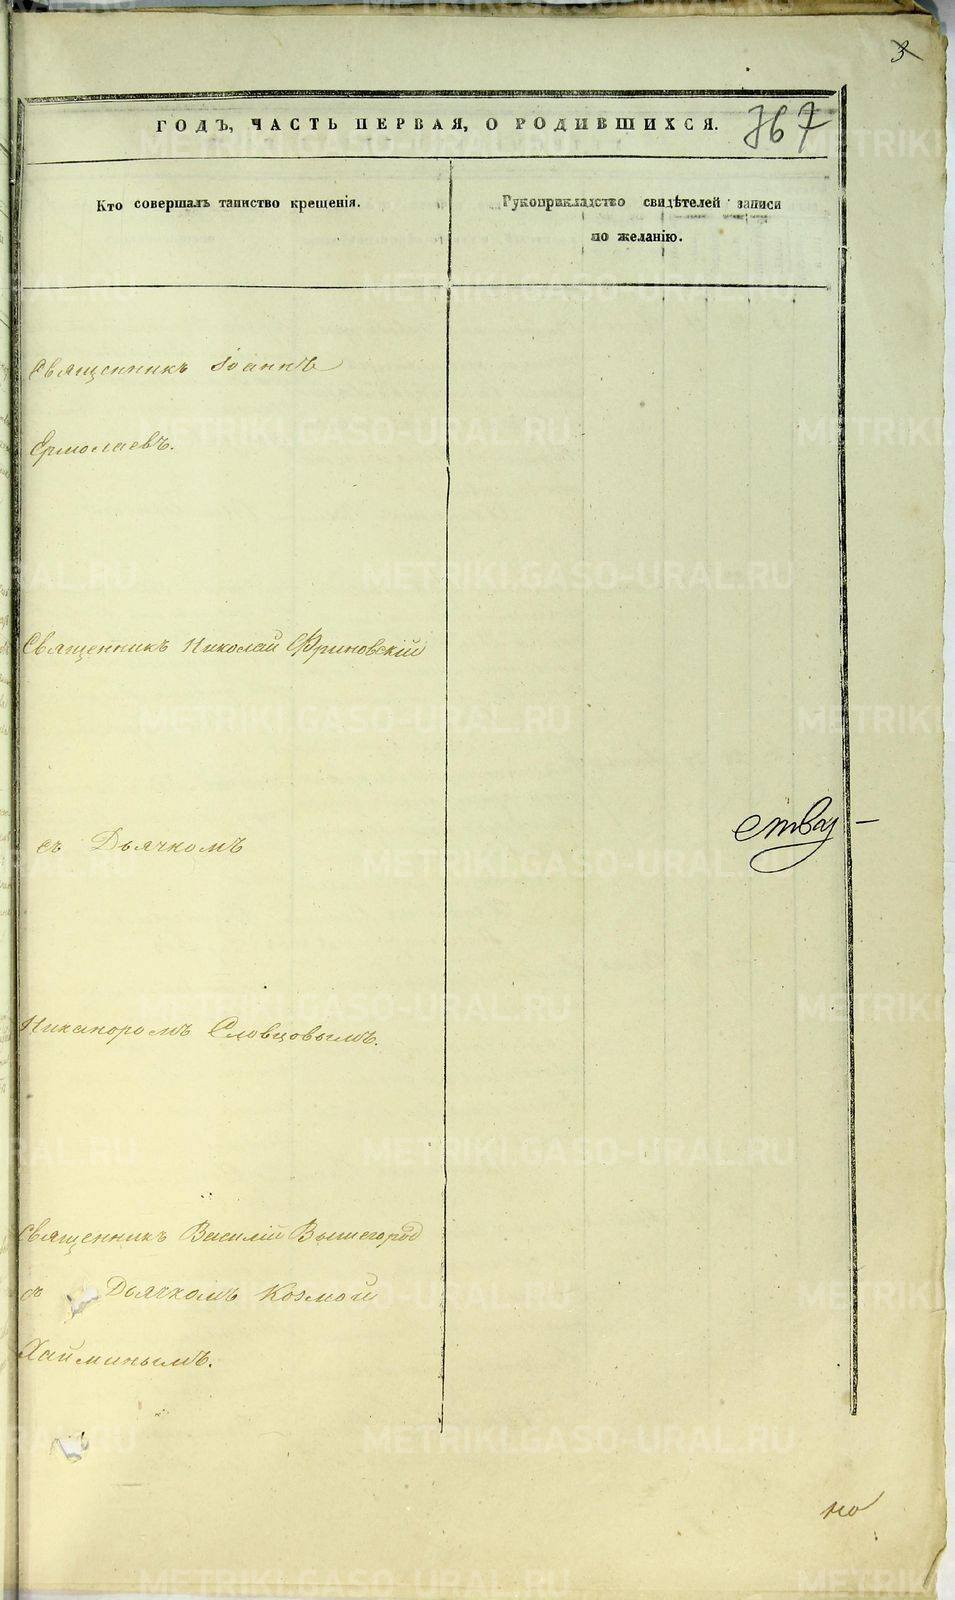 3
ГОДЪ, ЧАСТЬ ПЕРВАЯ, О РОДИВШИХСЯ. 767
Кто совершалъ таинство крещенія.
Рукоприкладство свидѣтелей записи
по желанію.
Священникъ Іоаннъ
Ермолаевъ.
Священникъ Николай Фриновскій
съ Дьячкомъ
ства
Никаноромъ Словцовымъ.
Священникъ Василій Вышегород
съ Дьячкомъ Козмой
Хайминымъ.
но
METRIKI.GASO-URAL.RU